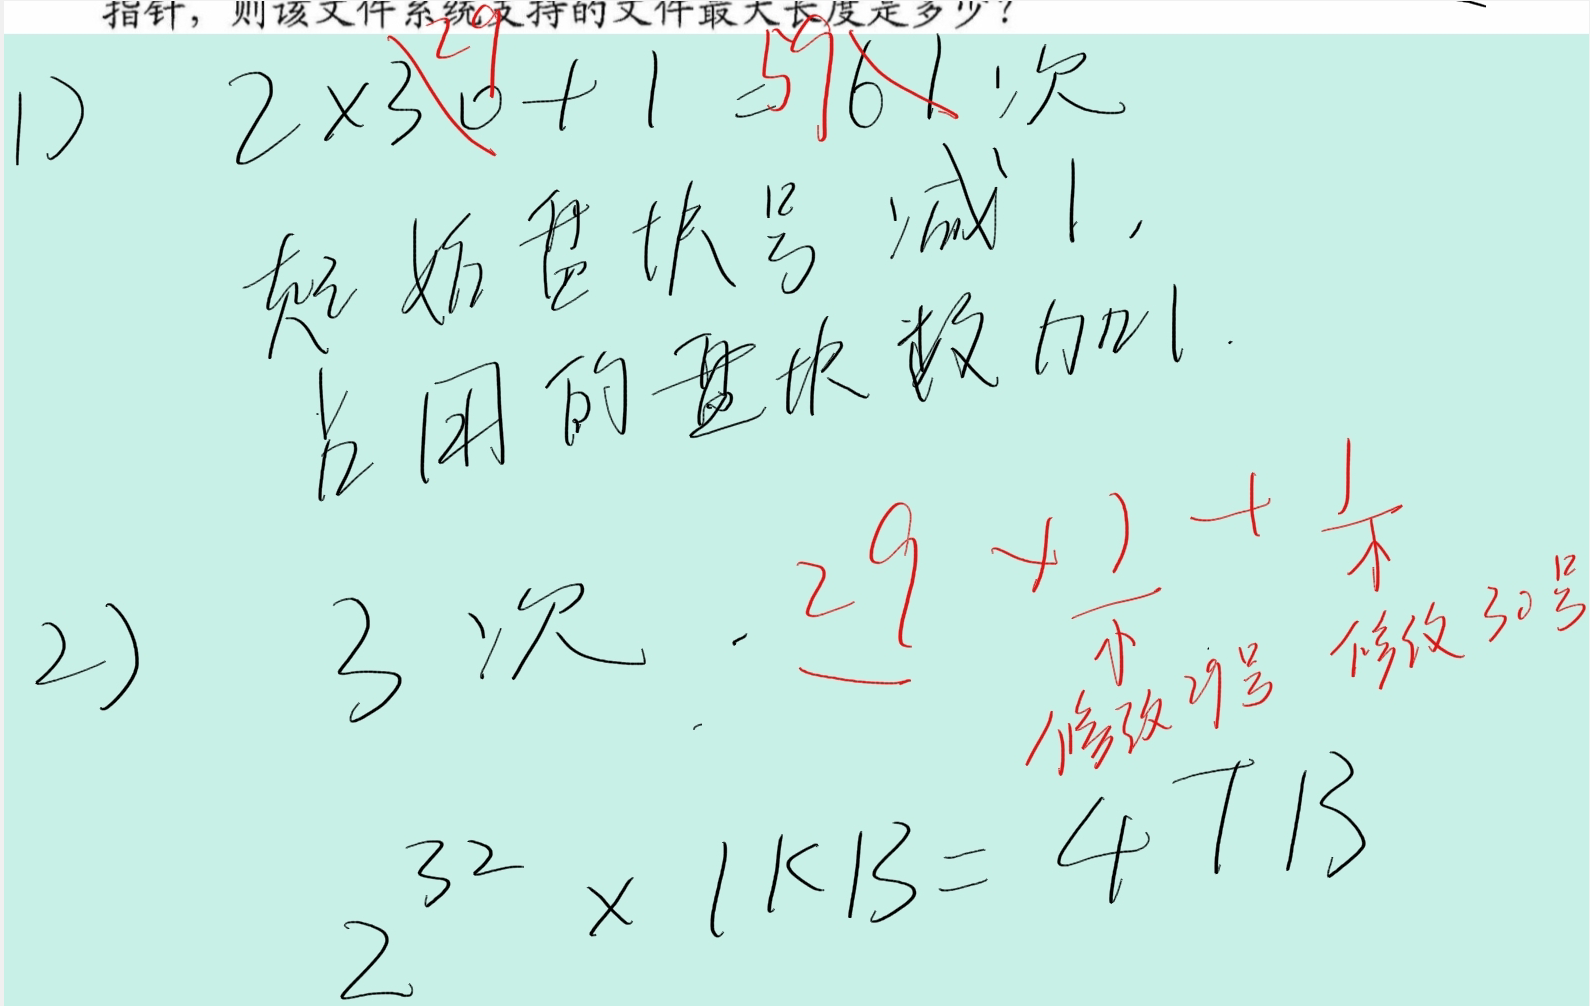 指针，则该文件系统支持的文件最大长度是多少？
1) 2×30+1=61次
29 59
起始盘块号减1,
占用的盘块数加1.
2) 3次. 29 + 1 + 1
修改29号 修改30号
2^32 × 1KB = 4TB